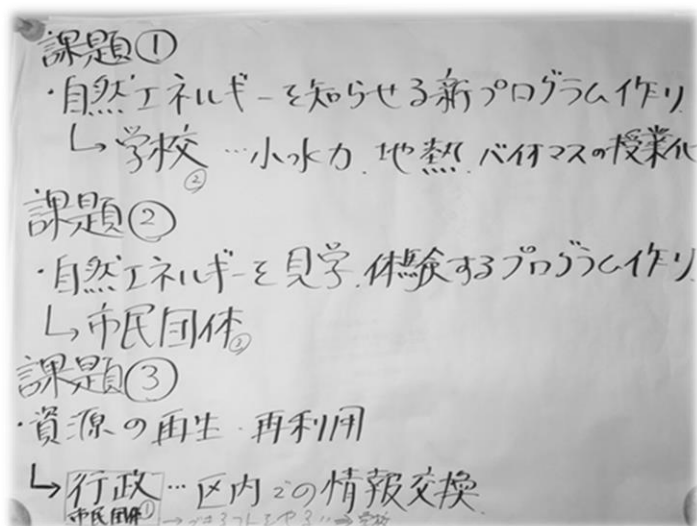 課題①
・自然エネルギーを知らせる新プログラム作り
↳学校…小水力、地熱、バイオマスの授業化
②
課題②
・自然エネルギーを見学、体験するプログラム作り
↳市民団体
課題③
・資源の再生・再利用
↳行政…区内での情報交換
市民団体①